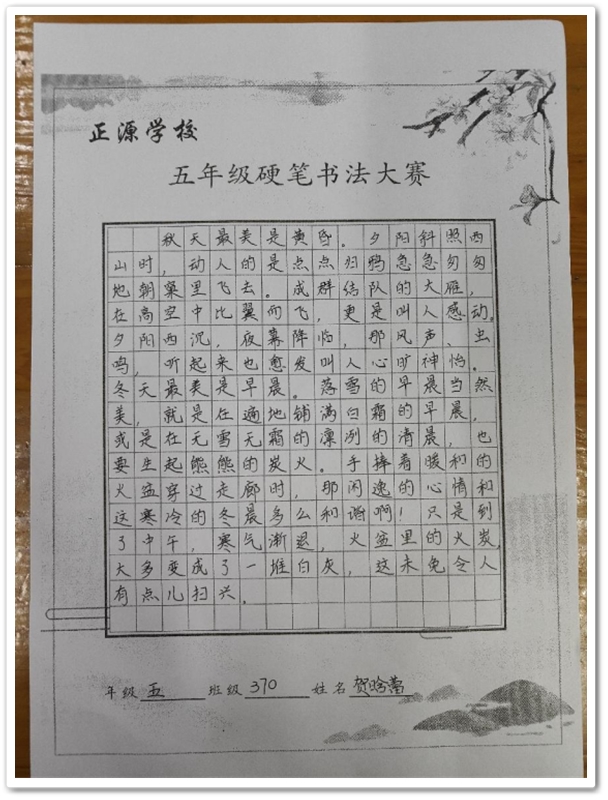 正源学校
五年级硬笔书法大赛
秋天最美是黄昏。夕阳斜照西
山时，动人的是点点归鸦急急匆匆
地朝窠里飞去。成群结队的大雁，
在高空中比翼而飞，更是叫人感动。
夕阳西沉，夜幕降临，那风声、虫
鸣，听起来也愈发叫人心旷神怡。
冬天最美是早晨。落雪的早晨当然
美，就是在遍地铺满白霜的早晨，
或是在无雪无霜的凛冽的清晨，也
要生起熊熊的炭火。手捧着暖和的
火盆穿过走廊时，那闲逸的心情和
这寒冷的冬晨多么和谐啊！只是到
了中午，寒气渐退，火盆里的火炭，
大多变成了一堆白灰，这未免令人
有点儿扫兴。
年级 五 班级 370 姓名 贺晗蕾